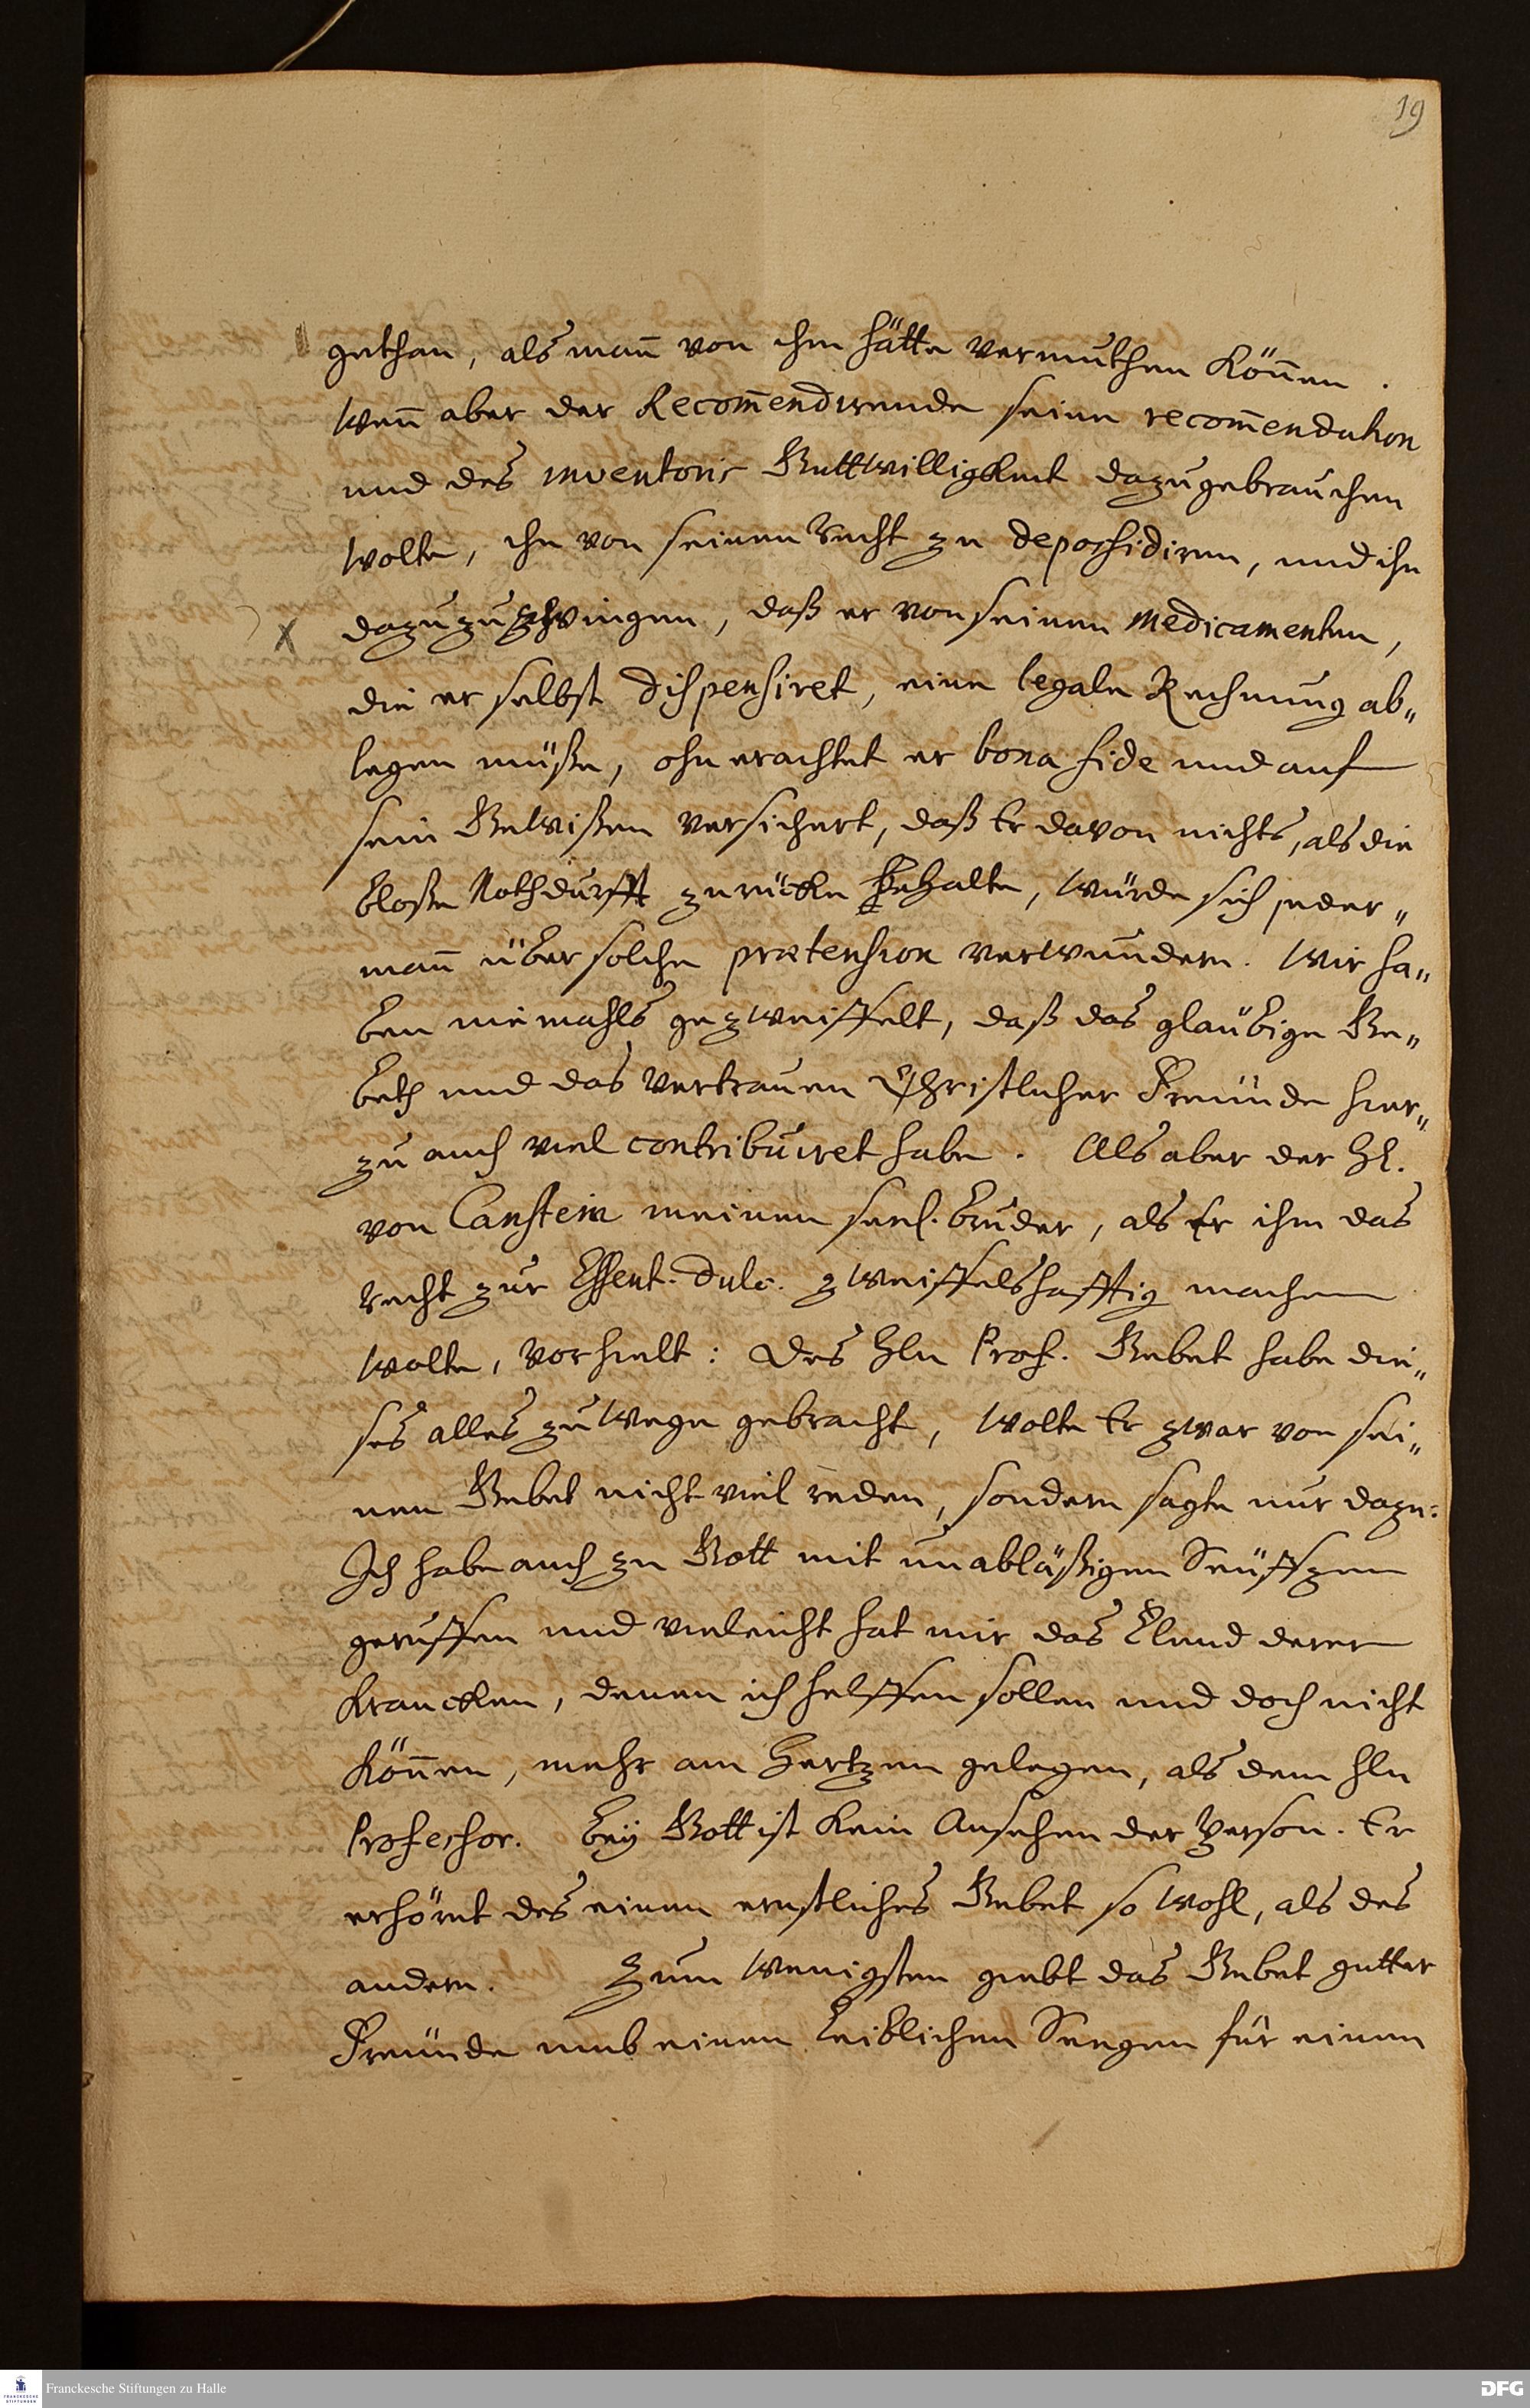 19
gethan, als man̄ von ihm hätte vermuthen kön̄en.
Wen̄ aber der Recom̄endirende seine recom̄endation
und des inventoris Guttwilligkeit dazu gebrauchen
wolte, ihn von seinem Recht zu depossidiren, und ihn
X dazu zu zwingen, daß er von seinen Medicamenten,
die er selbst dispensiret, eine legale Rechnung ab„
legen müße, ohnerachtet er bona fide und auf
sein Gewißen versichert, daß Er davon nichts, als die
bloße Nothdurfft zurücke behalte, würde sich jeder„
man̄ über solche prætension verwundern. Wir ha„
ben niemahls gezweiffelt, daß das gläubige Ge„
beth und das Vertrauen Christlicher Freunde hier„
zu auch viel contribuiret habe. Als aber der Hl.
von Canstein meinem seel. Bruder, als Er ihm das
Recht zur Essent. dulc. zweiffelshafftig machen
wolte, vorhielt: Des Hln Prof. Gebet habe die„
ses alles zuwege gebracht, wolte Er zwar von sei„
nem Gebet nicht viel reden, sondern sagte nur dazu:
Ich habe auch zu Gott mit unabläßigem Seuffzen
geruffen und vieleicht hat mir das Elend derer
Krancken, denen ich helffen sollen und doch nicht
kön̄en, mehr am Hertzen gelegen, als dem Hln
Professor. Bey Gott ist kein Ansehen der Person. Er
erhöret des einen ernstliches Gebet so wohl, als des
andern. Zum wenigsten giebt das Gebet gutter
Freunde umb einen leiblichen Seegen für einen
Franckesche Stiftungen zu Halle
FRANCKESCHE STIFTUNGEN
DFG